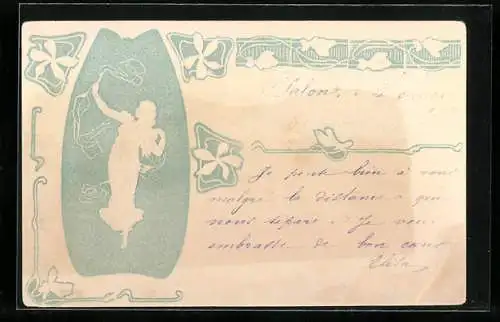 Salon,
Je pense bien à vous
malgré la distance que
nous sépare. Je vous
embrasse de bon cœur